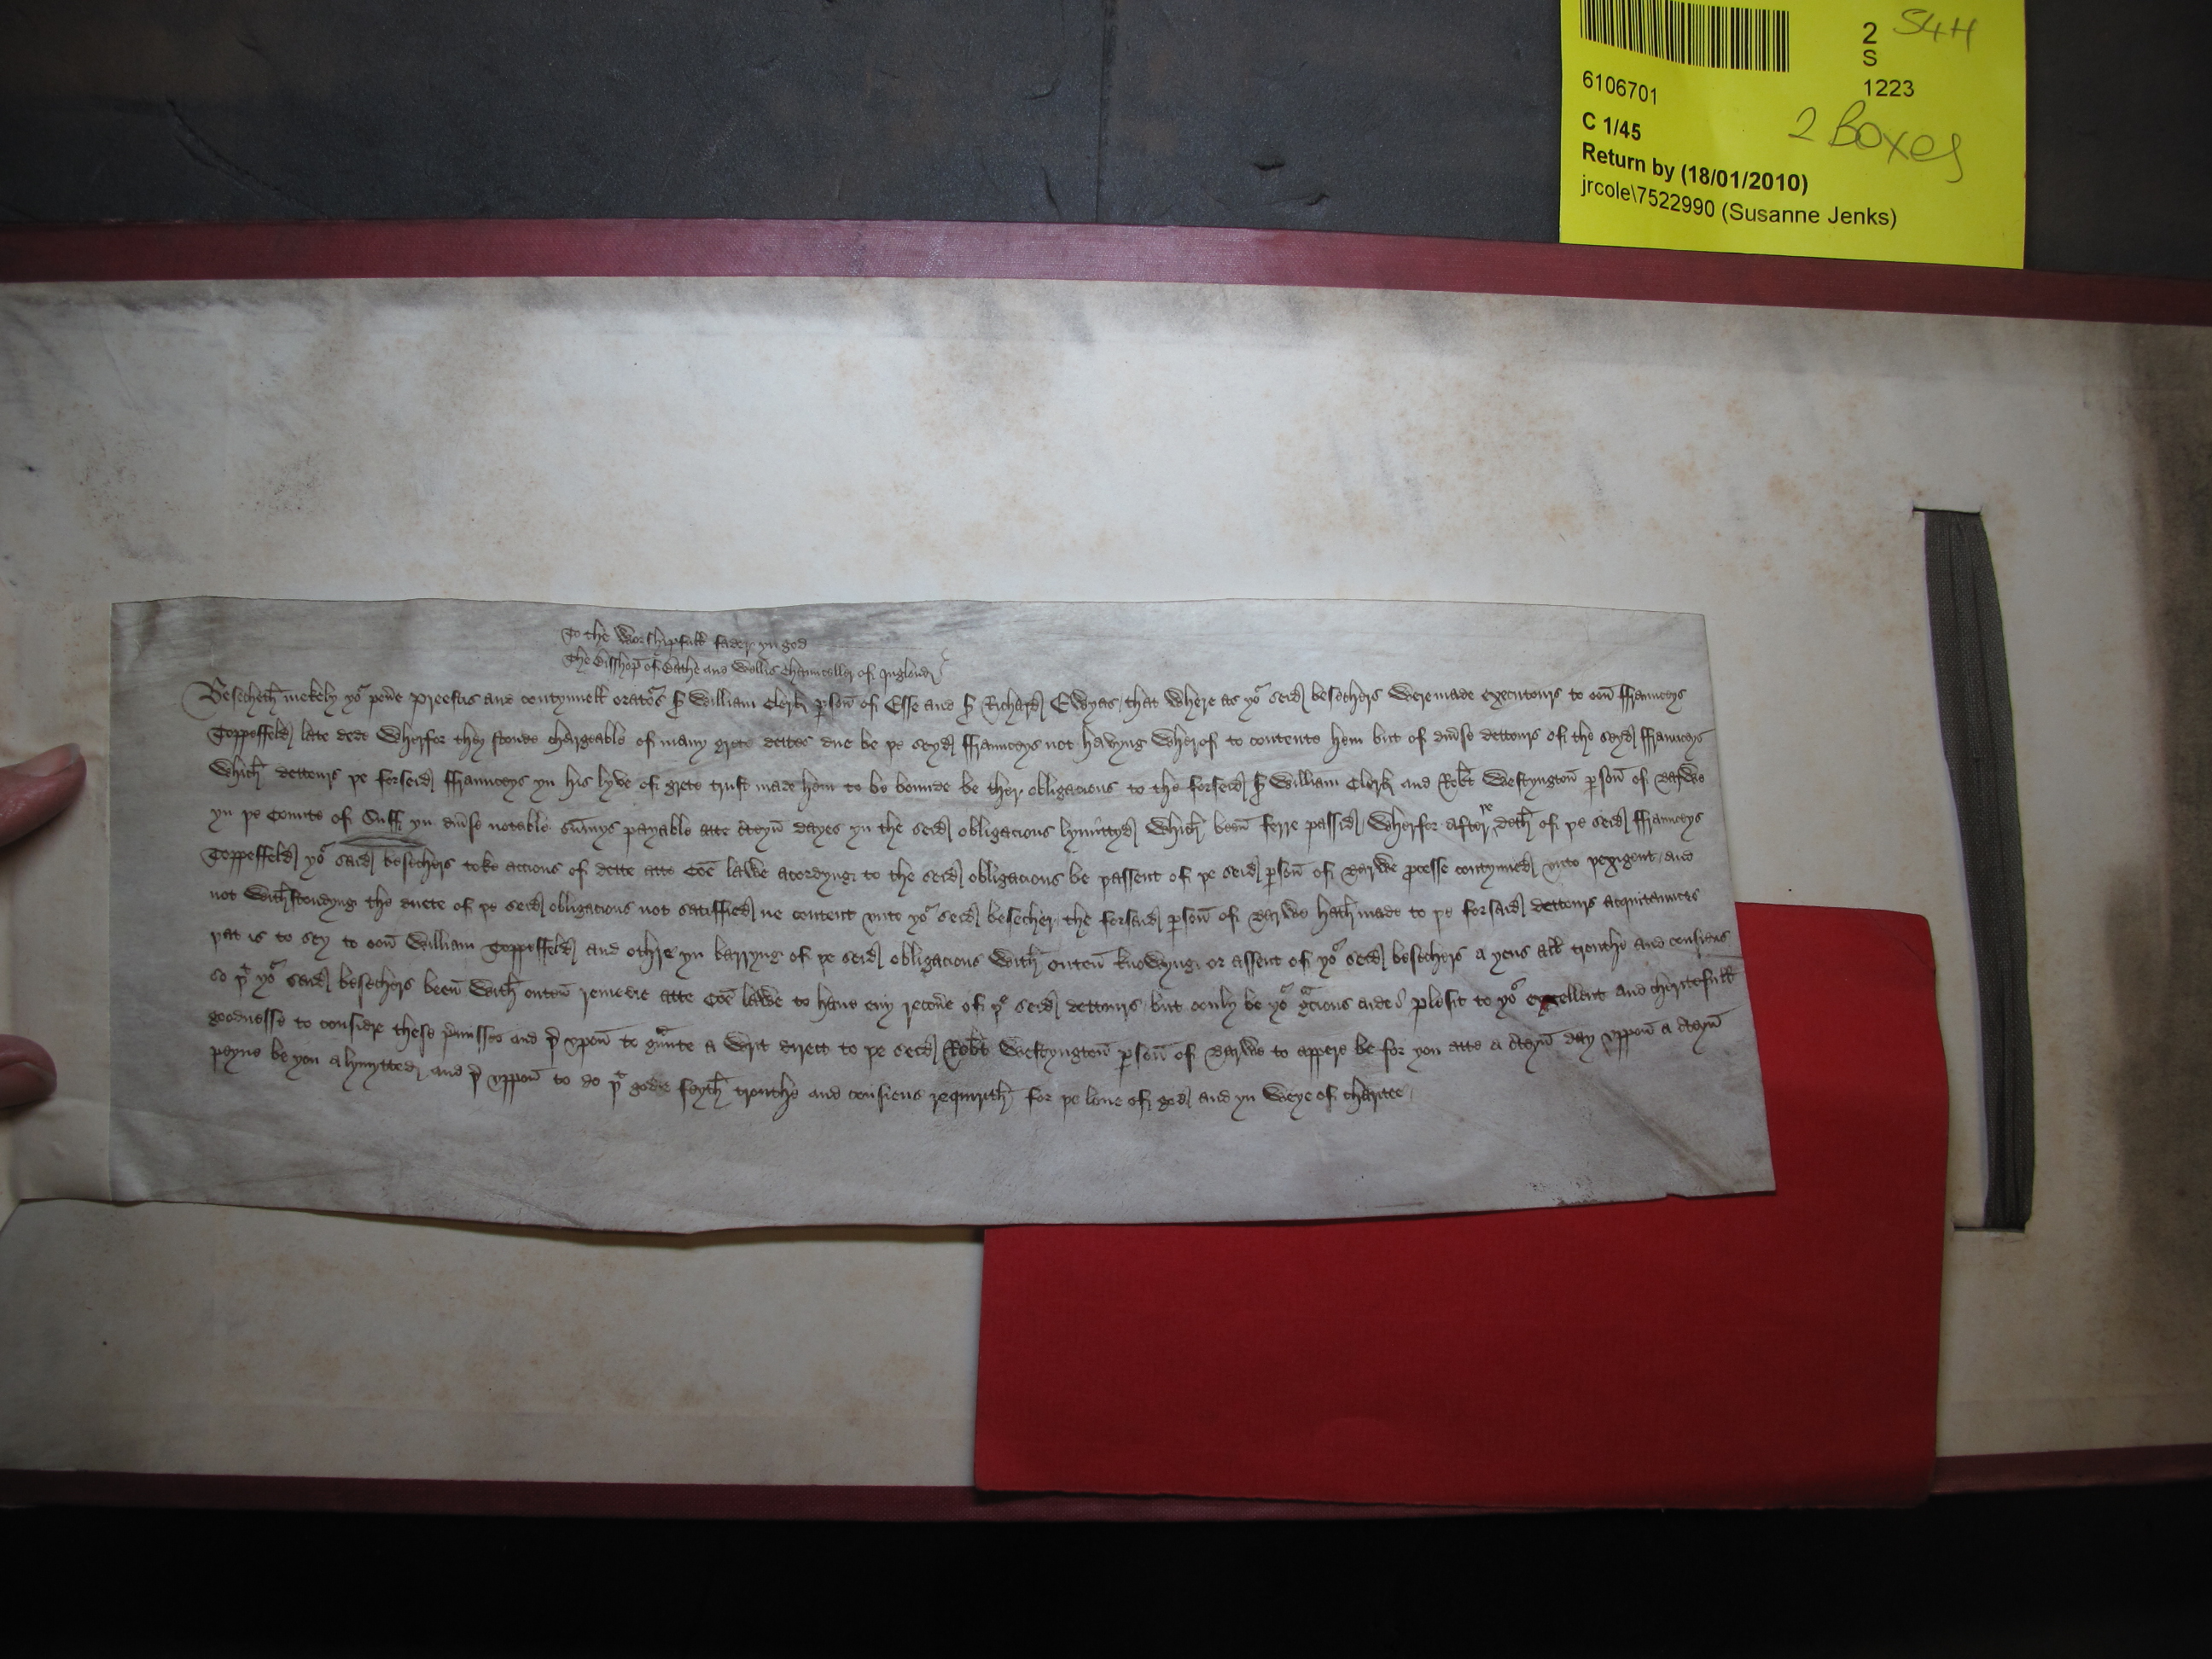 2 S4H
S
1223
6106701
C 1/45
2 Boxes
Return by (18/01/2010)
jrcole\7522990 (Susanne Jenks)
To the Worshipfull fader yn god
The Bisshop of Bathe and Wellis Chaunceller of Inglond
Besecheth mekely yor pou'e Preestus and contynuell orators Sr William Clerk p'son of Esse and Sr Richard Ewyas / that where as yor seid besechers were made executours to oon Ffraunceys
Toppeffeld late dede Wherfor they stonde chargeable of many grete dettes due be þe seyd Ffraunceys not havyng wherof to contente hem but of diu'se dettours of the seyd Ffraunceys
Which dettours þe forseid Ffraunceys yn his lyve of grete trust made hem to be bounde be ther obligacions to the forseid Sr William Clerk and Robt Westyngton p'son of Barwe
yn þe Counte of Suff yn diu'se notable su'mys payable atte c'teyn dayes yn the seid obligacions lymittyd Which been ferre passid / Wherfor after þe deth of þe seid Ffraunceys
Toppeffeld yor said besechers toke accions of dette atte Coe lawe acordyng to the seid obligacions be þassent of þe seid p'son of Barwe p'cesse contynued vnto þexigent / and
not withstondyng the duete of þe seid obligacions not satisfied ne content vnto yor seid besecher / the forsaid p'son of Barwe hath made to þe forsaid dettours acquitaunces
þat is to sey to oon William Toppeffeld and othre yn barryng of þe seid obligacions with outen knowyng or assent of yor seid besechers a yens all trouthe and consiens
so þt yor said besechers been with outen remedie atte Coe lawe to haue eny recou'e of þe seid dettours but oonly be yor g'cious aide / plesit to yor excellent and cheritefull
goodnesse to considre these p'misses and þ' vpon to g'unte a writ direct to þe seid Robt Westyngton p'son of Barwe to appere be for you atte a c'teyn day vppon a c'teyn
peyne be you a lymytted and þ' vppon to do þt godde feyth trouthe and consiens requirith for þe loue of god and yn weye of charitee